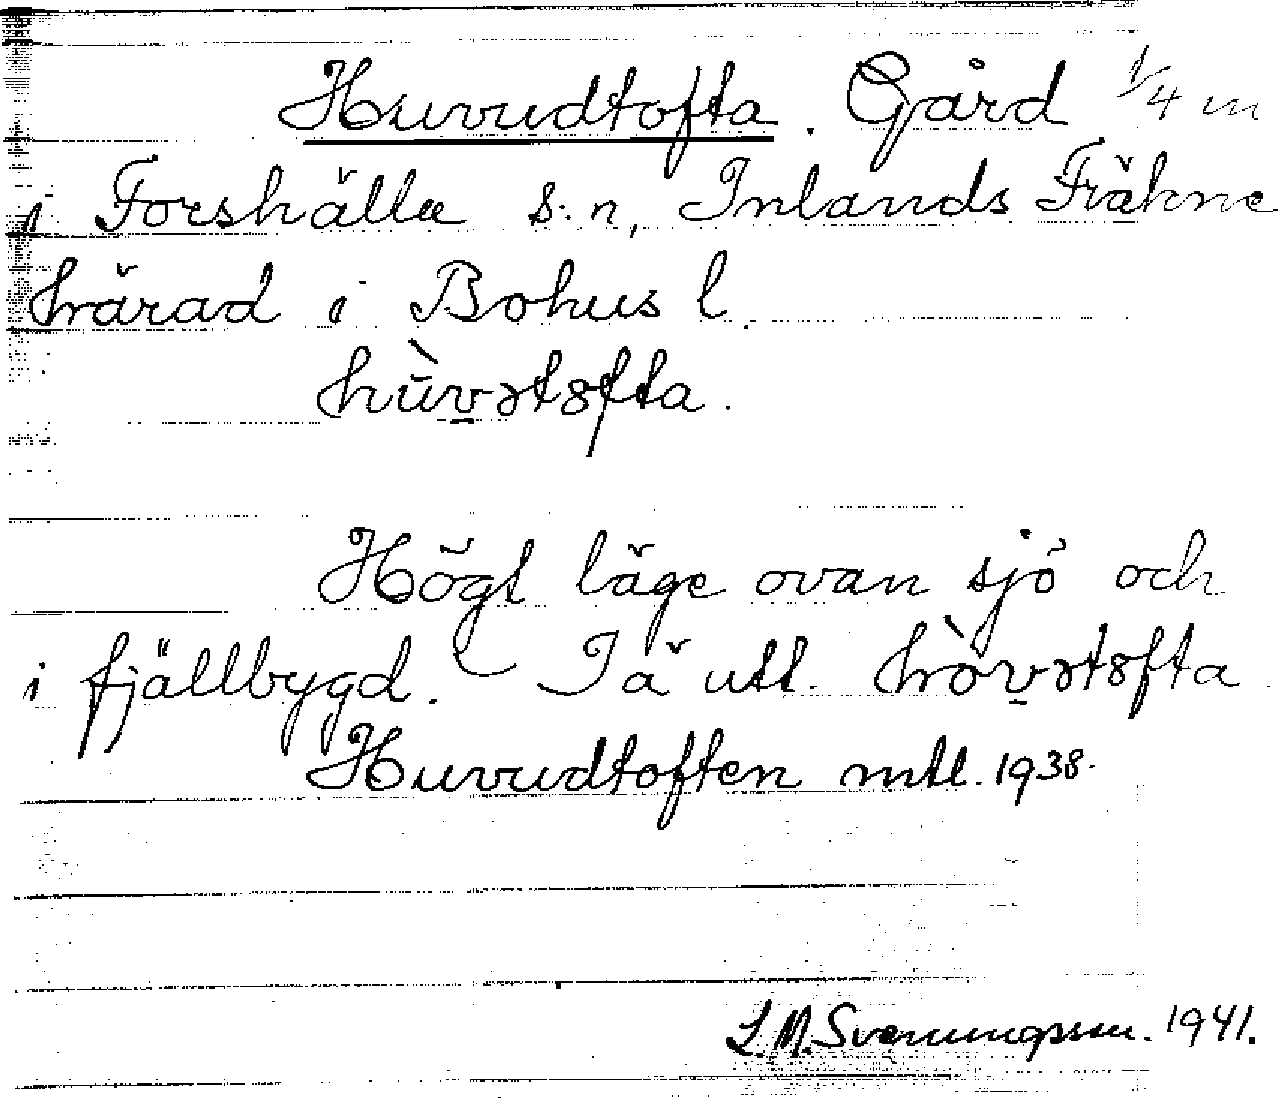 Huvudtofta. Gård 1/4 m
i Forshälla s:n, Inlands Fräkne
härad i Bohus l.
hùvətofta.
Högt läge ovan sjö och
i fjällbygd. Iä utt. hòvətofta
Huvudtoften mtl. 1938.
L.M. Svenungsson. 1941.